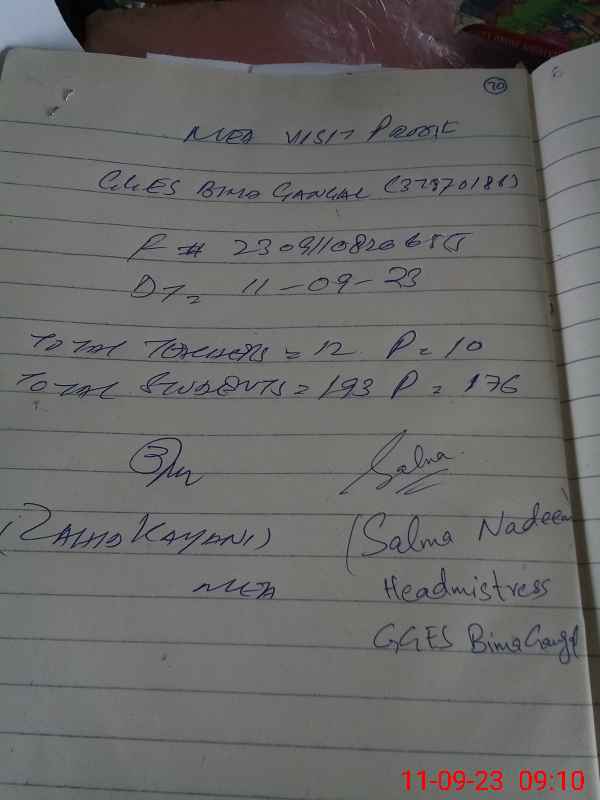 70
MEA VISIT PROOF
GGES BIMA GANGAL (37370186)
F # 23091108206655
DT= 11-09-23
TOTAL TEACHERS = 12 P = 10
TOTAL STUDENTS = 193 P = 176
Salma
(ZAHID KAYANI)
(Salma Nadeem)
MEA
Headmistress
GGES Bima Gangal
11-09-23 09:10